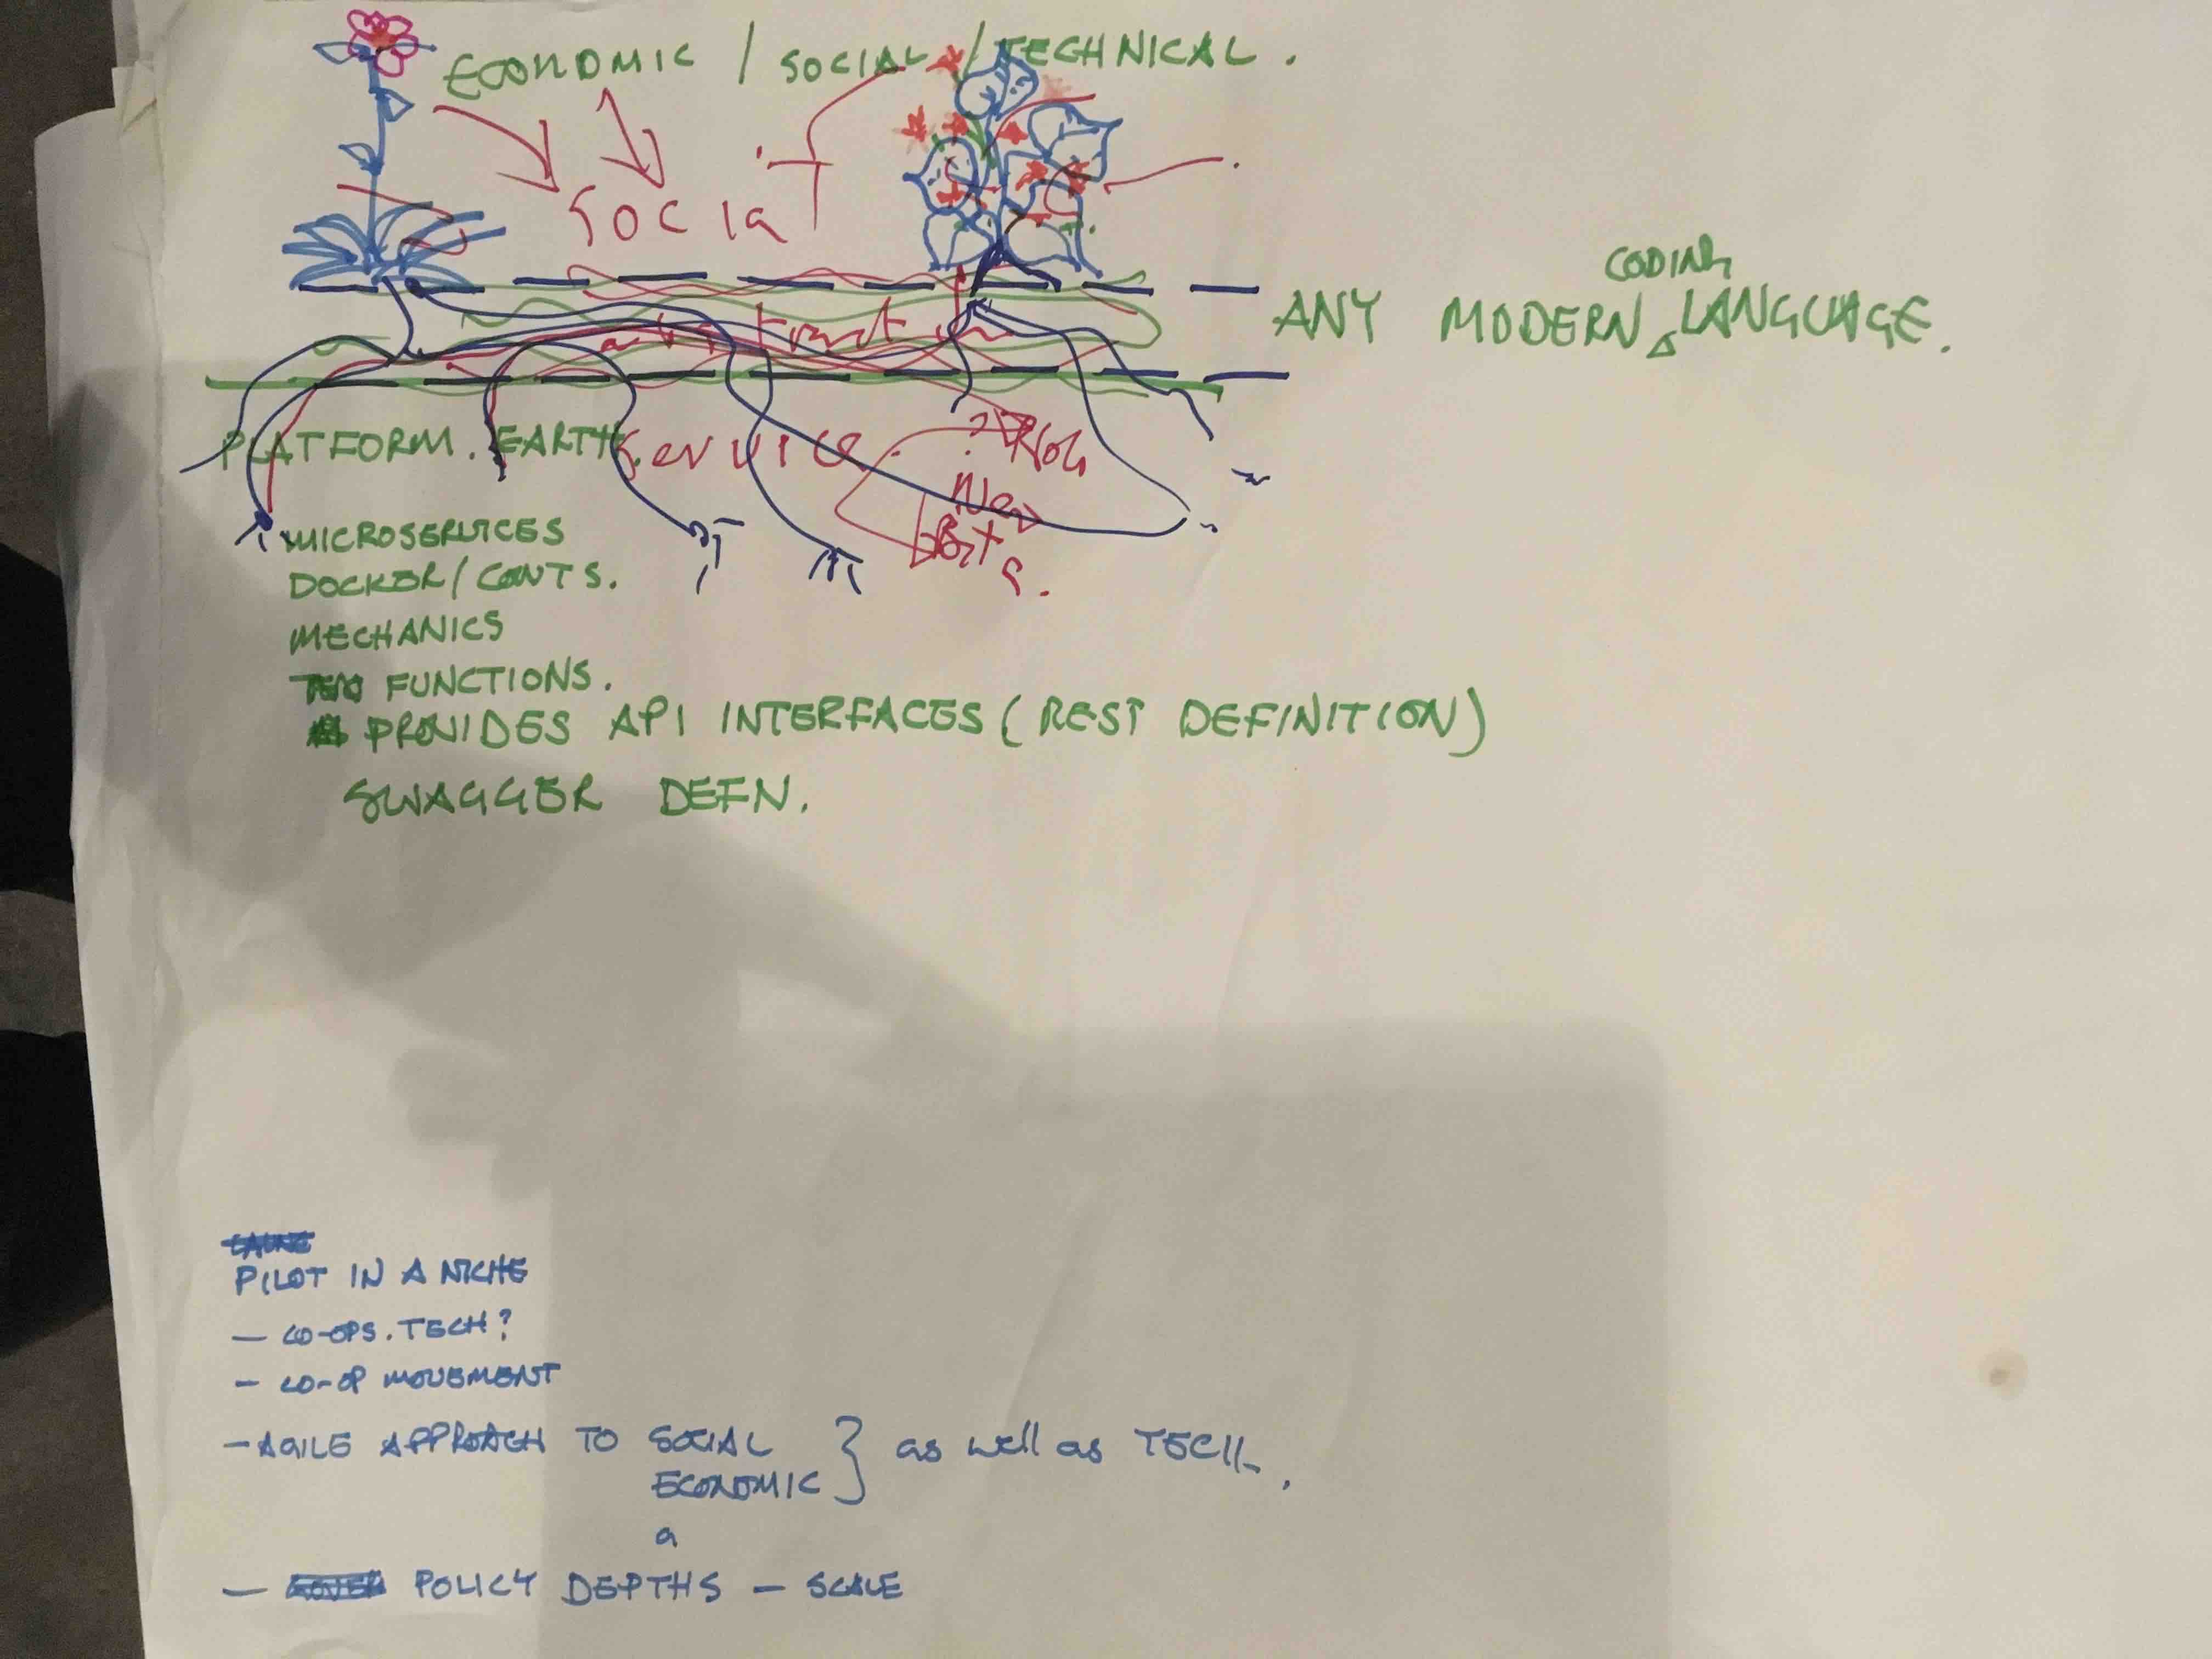 ECONOMIC / SOCIAL / TECHNICAL.
Social
CODING
ANY MODERN LANGUAGE.
PLATFORM. EARTH.
Service
MICROSERVICES
DOCKER/CONTS.
MECHANICS
FUNCTIONS.
PROVIDES API INTERFACES (REST DEFINITION)
SWAGGER DEFN.
PILOT IN A NICHE
— CO-OPS.TECH?
– CO-OP MOVEMENT
– AGILE APPROACH TO SOCIAL } as well as TECH.
ECONOMIC
a
— POLICY DEPTHS – SCALE